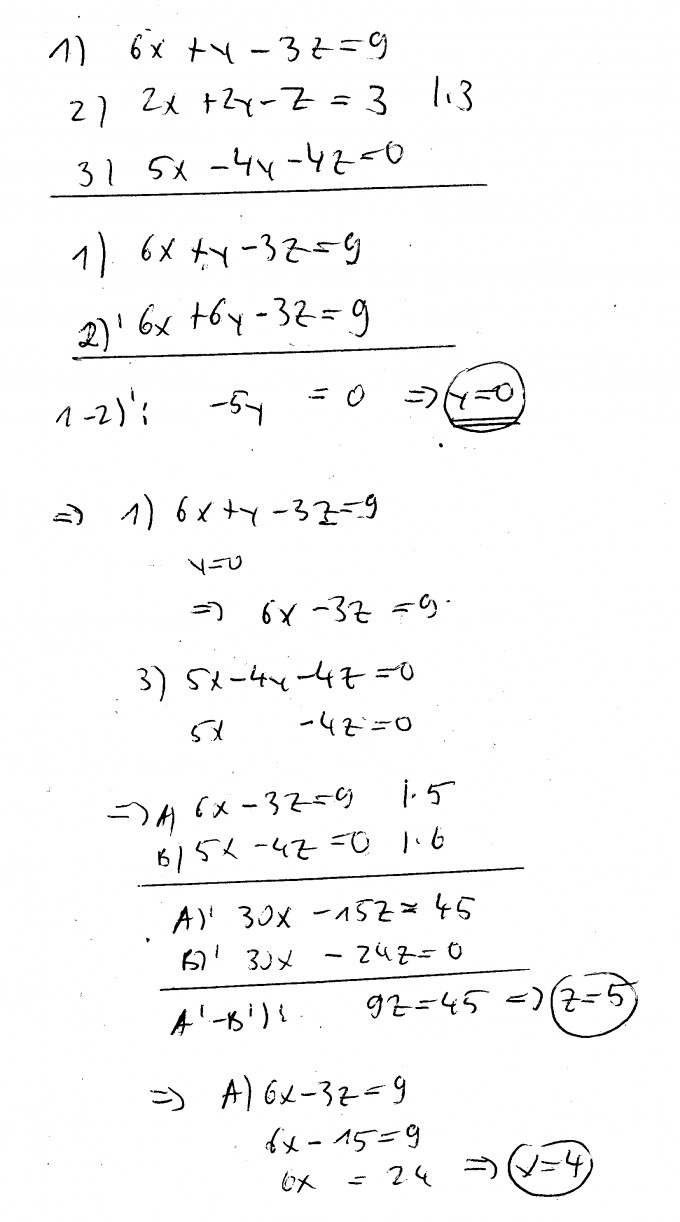 1) 6x + y - 3z = 9
2) 2x + 2y - z = 3 |·3
3) 5x - 4y - 4z = 0
1) 6x + y - 3z = 9
2)' 6x + 6y - 3z = 9
1-2)': -5y = 0 => y=0
=> 1) 6x + y - 3z = 9
y=0
=> 6x - 3z = 9
3) 5x - 4y - 4z = 0
5x - 4z = 0
=> A) 6x - 3z = 9 |·5
B) 5x - 4z = 0 |·6
A)' 30x - 15z = 45
B)' 30x - 24z = 0
A'-B'): 9z = 45 => z=5
=> A) 6x - 3z = 9
6x - 15 = 9
6x = 24 => x=4